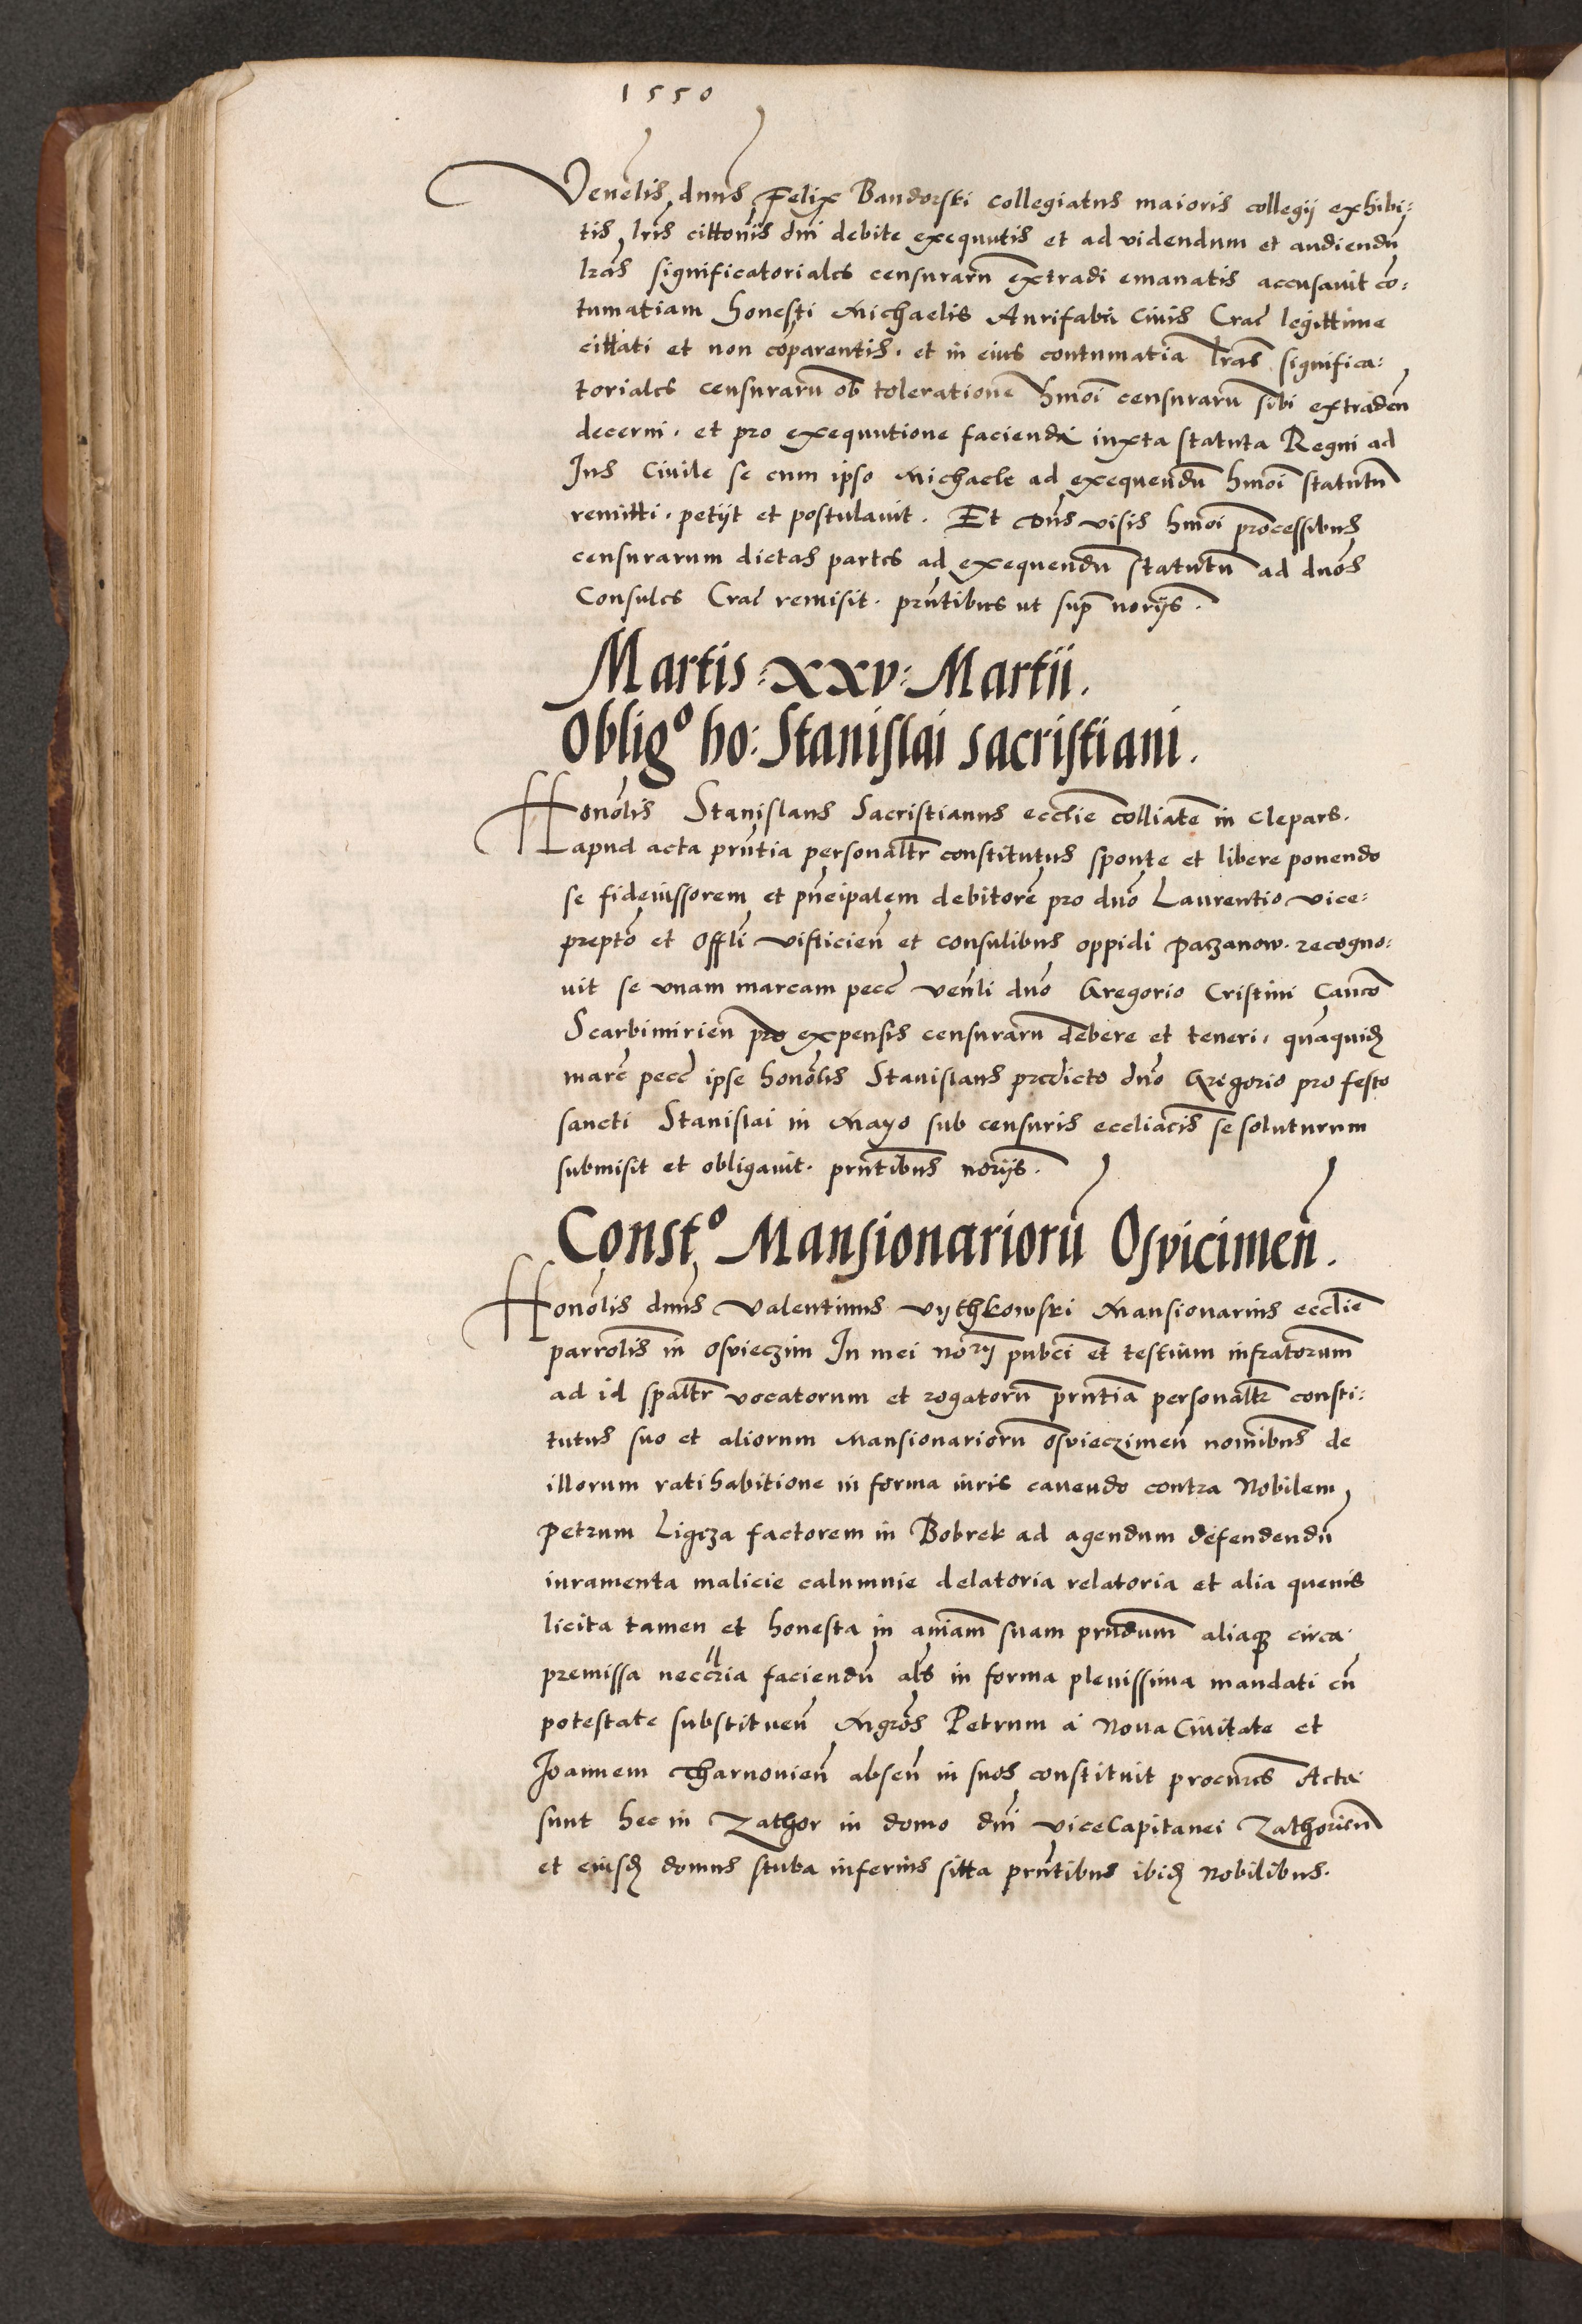 1550
Venelis dnus Felix Bandorski collegiatus maioris collegij exhibi:
tis lris cittonis dni debite exequutis et ad videndum et audiendu
lras significatoriales censuraru extradi emanatis accusavit co:
tumatiam honesti Michaelis Aurifabri Civis Crac legittime
cittati et non coparentis. et in eius contumatia lras significa:
toriales censuraru ob toleratione hmoi censuraru sibi extraden
decerni. et pro exequutione facienda iuxta statuta Regni ad
Jus Civile se cum ipso Michaele ad exequendu hmoi statutu
remitti. petijt et postulavit. Et Dns visis hmoi processibus
censurarum dictas partes ad exequendu statutu ad dnos
Consules Crac remisit. prntibus ut sup norijs.
Martis: XXV: Martii.
Obligo ho: Stanislai sacristiani.
Honolis Stanislaus Sacristianus ecclie colliate in Clepars.
apud acta prntia personaltr constitutus sponte et libere ponendo
se fideiussorem et pncipalem debitore pro dno Laurentio vice:
prepto et Offli visticien et consulibus oppidi paczanow. recogno:
uit se vnam marcam pecc venli dno Gregorio Cristini Canco
Scarbimirien pro expensis censuraru debere et teneri. quaquid
marc pecc ipse honolis Stanislaus predicto dno Gregorio pro festo
sancti Stanislai in Mayo sub censuris eccliacis se soluturum
submisit et obligavit. prntibus norijs.
Consto Mansionarioru Osvicimen.
Honolis dnus Valentinus Vythkowski Mansionarius ecclie
parrolis in osvieczim In mei norij pubci et testium infratorum
ad id spaltr vocatorum et rogatoru prntia personaltr consti:
tutus suo et aliorum Mansionarioru osvieczimen nomibus de
illorum ratihabitione in forma iuris cavendo contra Nobilem
Petrum Ligcza factorem in Bobrek ad agendum defendendu
iuramenta malicie calumnie delatoria relatoria et alia quevis
licita tamen et honesta in aniam suam prndum aliaque circa
premissa neccria faciendu als in forma plenissima mandati cu
potestate substituen Mgros Petrum a Nova Civitate et
Joannem Tharnovien absen in suos constituit procures Acta
sunt hec in Zathor in domo dni viceCapitanei Zathorien
et eiusd domus stuba inferius sitta prntibus ibid Nobilibus.